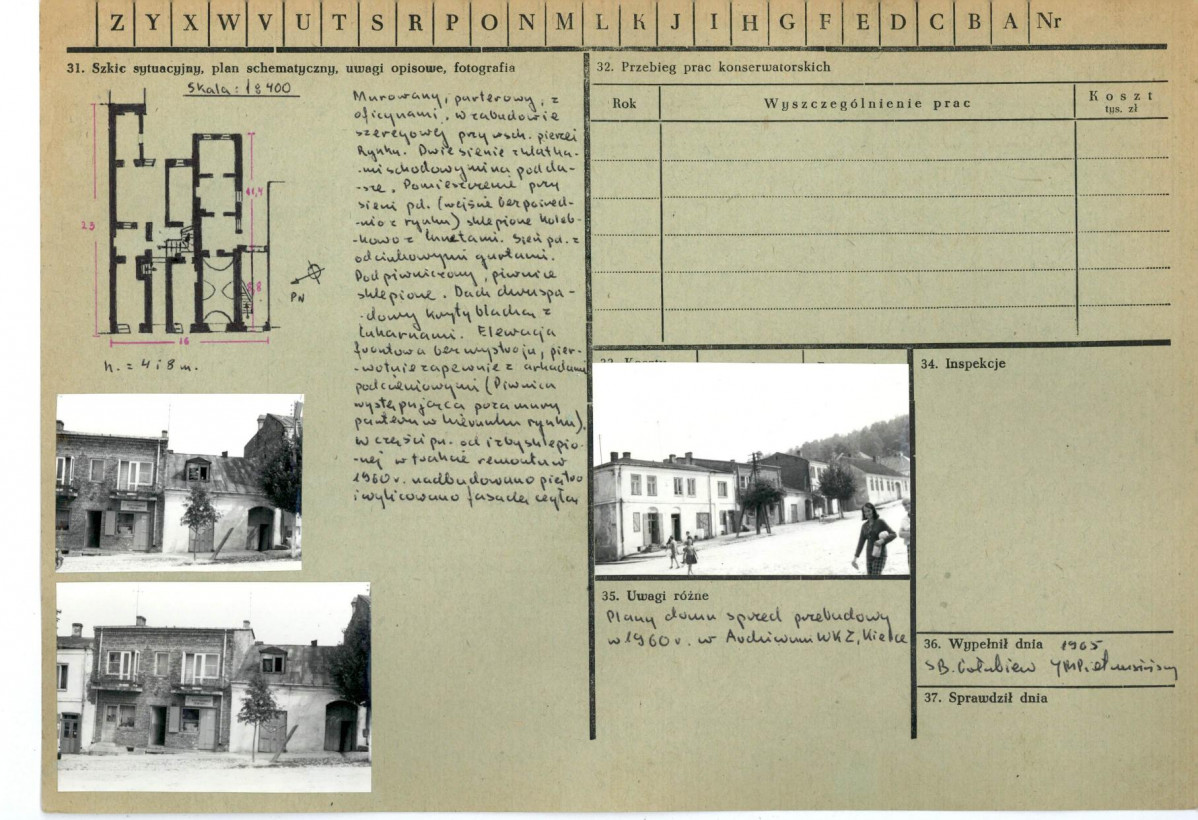 Z Y X W V U T S R P O N M L K J I H G F E D C B A Nr
31. Szkic sytuacyjny, plan schematyczny, uwagi opisowe, fotografia
Skala: 1:400
23
11,4
8,8
16
PN
h. = 4 i 8 m.
Murowany, parterowy, z
oficynami, w zabudowie
szeregowej przy wsch. pierzei
Rynku. Dwie sienie z klatka-
-mi schodowymi na podda-
-sze. Pomieszczenie przy
sieni pd. (wejście bezpośred-
-nio z rynku) sklepione koleb-
-kowo z lunetami. Sień pd. z
odcinkowymi gurtami.
Podpiwniczony, piwnice
sklepione. Dach dwuspa-
-dowy kryty blachą z
lukarnami. Elewacja
frontowa bez wystroju, pier-
-wotnie zapewnie z arkadami
podcieniowymi (Piwnica
występująca poza mury
parteru w kierunku rynku).
W części pn. od izby sklepio-
-nej w trakcie remontu w
1960 r. nadbudowano piętro
i wylicowano fasadę cegłą
32. Przebieg prac konserwatorskich
Rok Wyszczególnienie prac Koszt
tys. zł
34. Inspekcje
35. Uwagi różne
Plany domu sprzed przebudowy
w 1960 r. w Archiwum WKZ, Kielce
36. Wypełnił dnia 1965
37. Sprawdził dnia